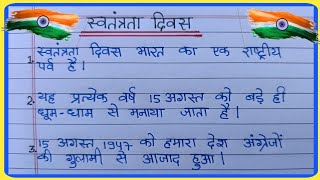 स्वतंत्रता दिवस
1. स्वतंत्रता दिवस भारत का एक राष्ट्रीय
पर्व है।
2. यह प्रत्येक वर्ष 15 अगस्त को बड़े ही
धूम-धाम से मनाया जाता है।
3. 15 अगस्त 1947 को हमारा देश अंग्रेजों
की गुलामी से आजाद हुआ।